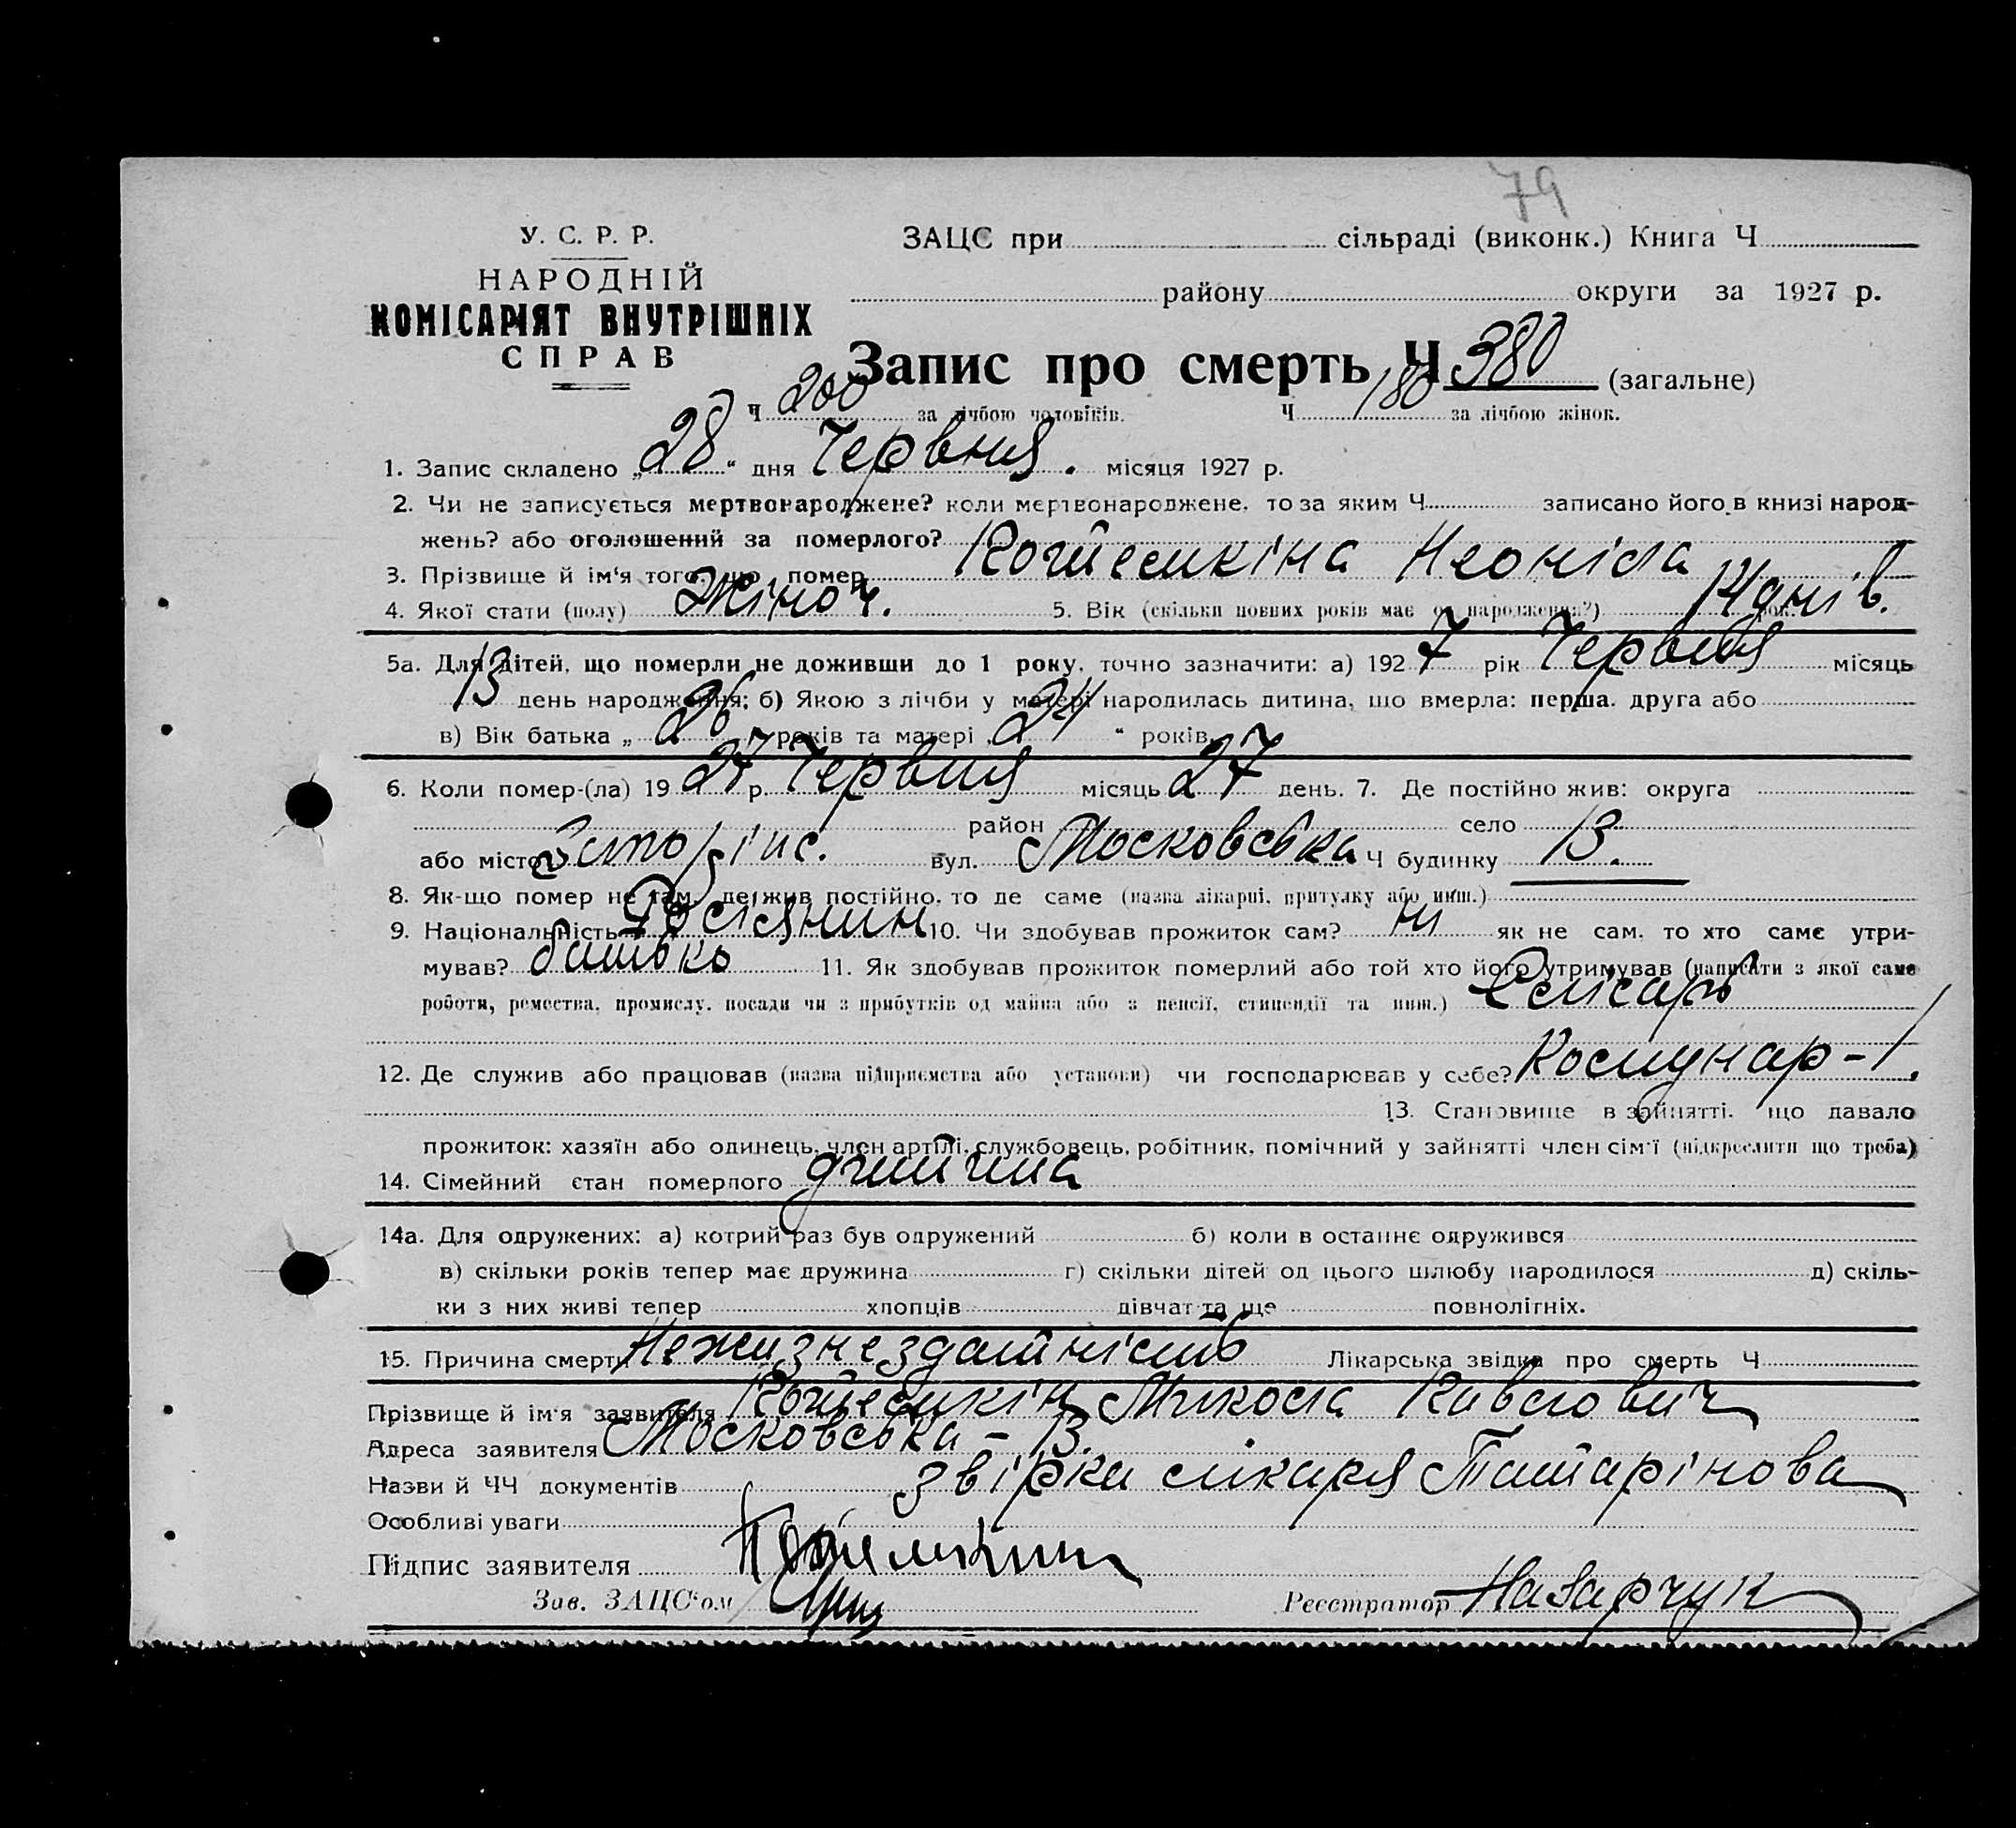 79
У. С. Р. Р.
НАРОДНІЙ
КОМІСАРІЯТ ВНУТРІШНІХ
СПРАВ
ЗАЦС при сільраді (виконк.) Книга Ч
району округи за 1927 р.
Запис про смерть Ч 380 (загальне)
Ч 200 за лічбою чоловіків. Ч 180 за лічбою жінок.
1. Запис складено „28" дня Червня. місяця 1927 р.
2. Чи не записується мертвонароджене? коли мертвонароджене, то за яким Ч записано його в книзі народ-
жень? або оголошений за померлого?
3. Прізвище й ім'я того, що помер Неоніла
4. Якої стати (полу) Жіноч. 5. Вік (скільки повних років має од народження?) 14 днів.
5а. Для дітей, що померли не доживши до 1 року, точно зазначити: а) 1927 рік Червня місяць
13 день народження; б) Якою з лічби у матері народилась дитина, що вмерла: перша, друга або
в) Вік батька „26" років та матері „24" років.
6. Коли помер-(ла) 1927 р. Червня місяць 27 день. 7. Де постійно жив: округа
район село
або місто вул. Московська Ч будинку 13.
8. Як-що помер не там, де жив постійно, то де саме (назва лікарні, притулку або инш.)
9. Національність Росіянин 10. Чи здобував прожиток сам? ні як не сам, то хто саме утри-
мував? батько 11. Як здобував прожиток померлий або той хто його утримував (написати з якої саме
роботи, ремества, промислу, посади чи з прибутків од майна або з пенсії, стипендії та инш.) Слюсарь
12. Де служив або працював (назва підприємства або установи) чи господарював у себе? Комунар-1.
13. Становище в зайнятті, що давало
прожиток: хазяїн або одинець, член артілі, службовець, робітник, помічний у зайнятті член сім'ї (підкреслити що треба)
14. Сімейний стан померлого дитина
14а. Для одружених: а) котрий раз був одружений б) коли в останнє одружився
в) скільки років тепер має дружина г) скільки дітей од цього шлюбу народилося д) скіль-
ки з них живі тепер хлопців дівчат та ще повнолітніх.
15. Причина смерти Нежизнездатність Лікарська звідка про смерть Ч
Прізвище й ім'я заявителя Микола
Адреса заявителя Московська – 13.
Назви й ЧЧ документів лікаря Татарінова
Особливі уваги
Підпис заявителя
Зав. ЗАЦС'ом
Реєстратор Назарчук